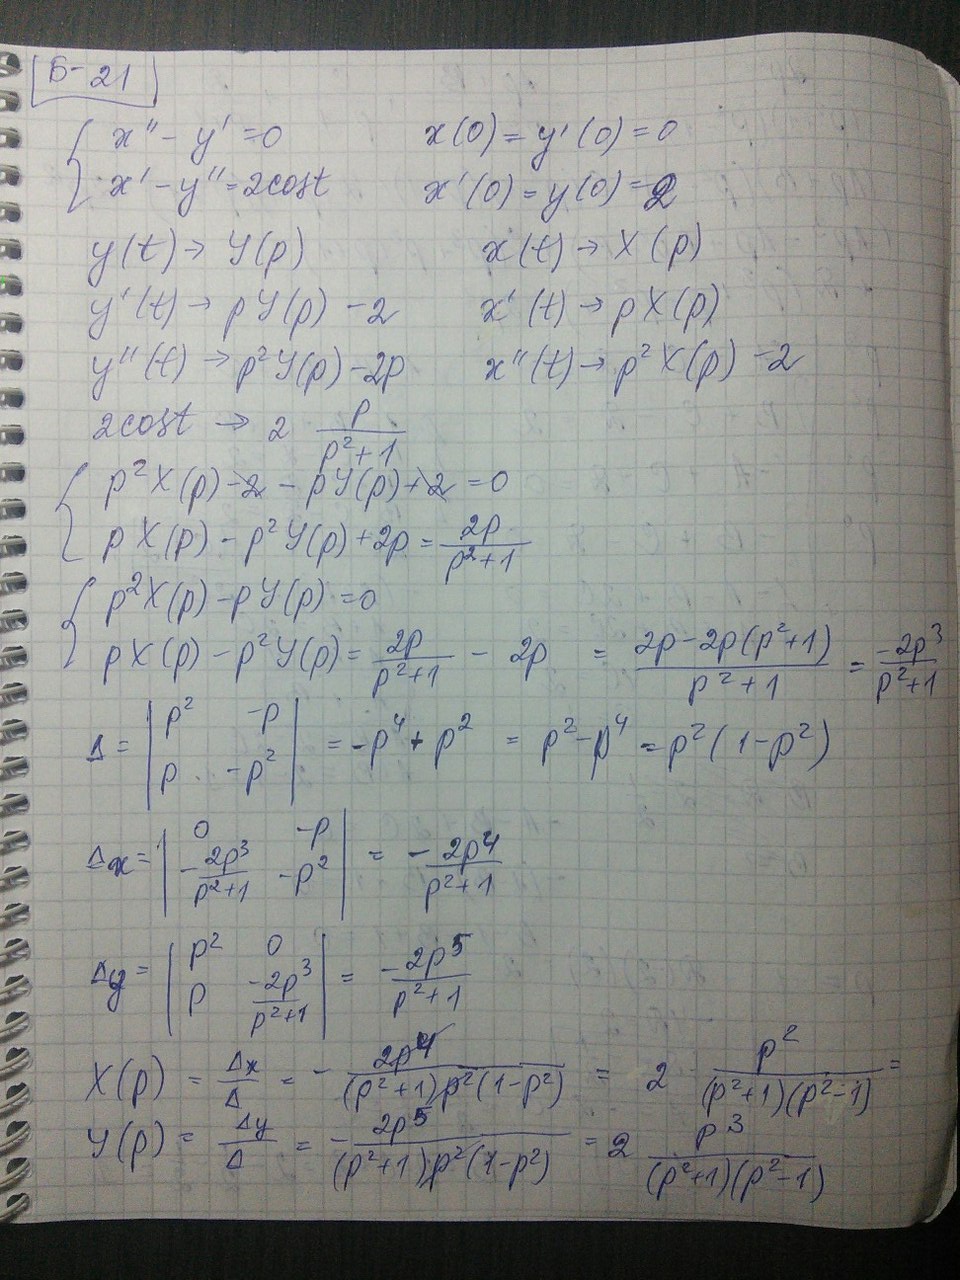 Б-21
{ x'' - y' = 0    x(0) = y'(0) = 0
{ x' - y'' = 2cost    x'(0) = y(0) = 2
y(t) → Y(p)    x(t) → X(p)
y'(t) → pY(p) - 2    x'(t) → pX(p)
y''(t) → p²Y(p) - 2p    x''(t) → p²X(p) - 2
2cost → 2 p/(p²+1)
{ p²X(p) - 2 - pY(p) + 2 = 0
{ pX(p) - p²Y(p) + 2p = 2p/(p²+1)
{ p²X(p) - pY(p) = 0
{ pX(p) - p²Y(p) = 2p/(p²+1) - 2p = (2p - 2p(p²+1))/(p²+1) = -2p³/(p²+1)
Δ = | p²  -p ; p  -p² | = -p⁴ + p² = p² - p⁴ = p²(1-p²)
Δx = | 0  -p ; -2p³/(p²+1)  -p² | = -2p⁴/(p²+1)
Δy = | p²  0 ; p  -2p³/(p²+1) | = -2p⁵/(p²+1)
X(p) = Δx/Δ = - 2p⁴/((p²+1)p²(1-p²)) = 2 p²/((p²+1)(p²-1)) =
Y(p) = Δy/Δ = - 2p⁵/((p²+1)p²(1-p²)) = 2 p³/((p²+1)(p²-1))